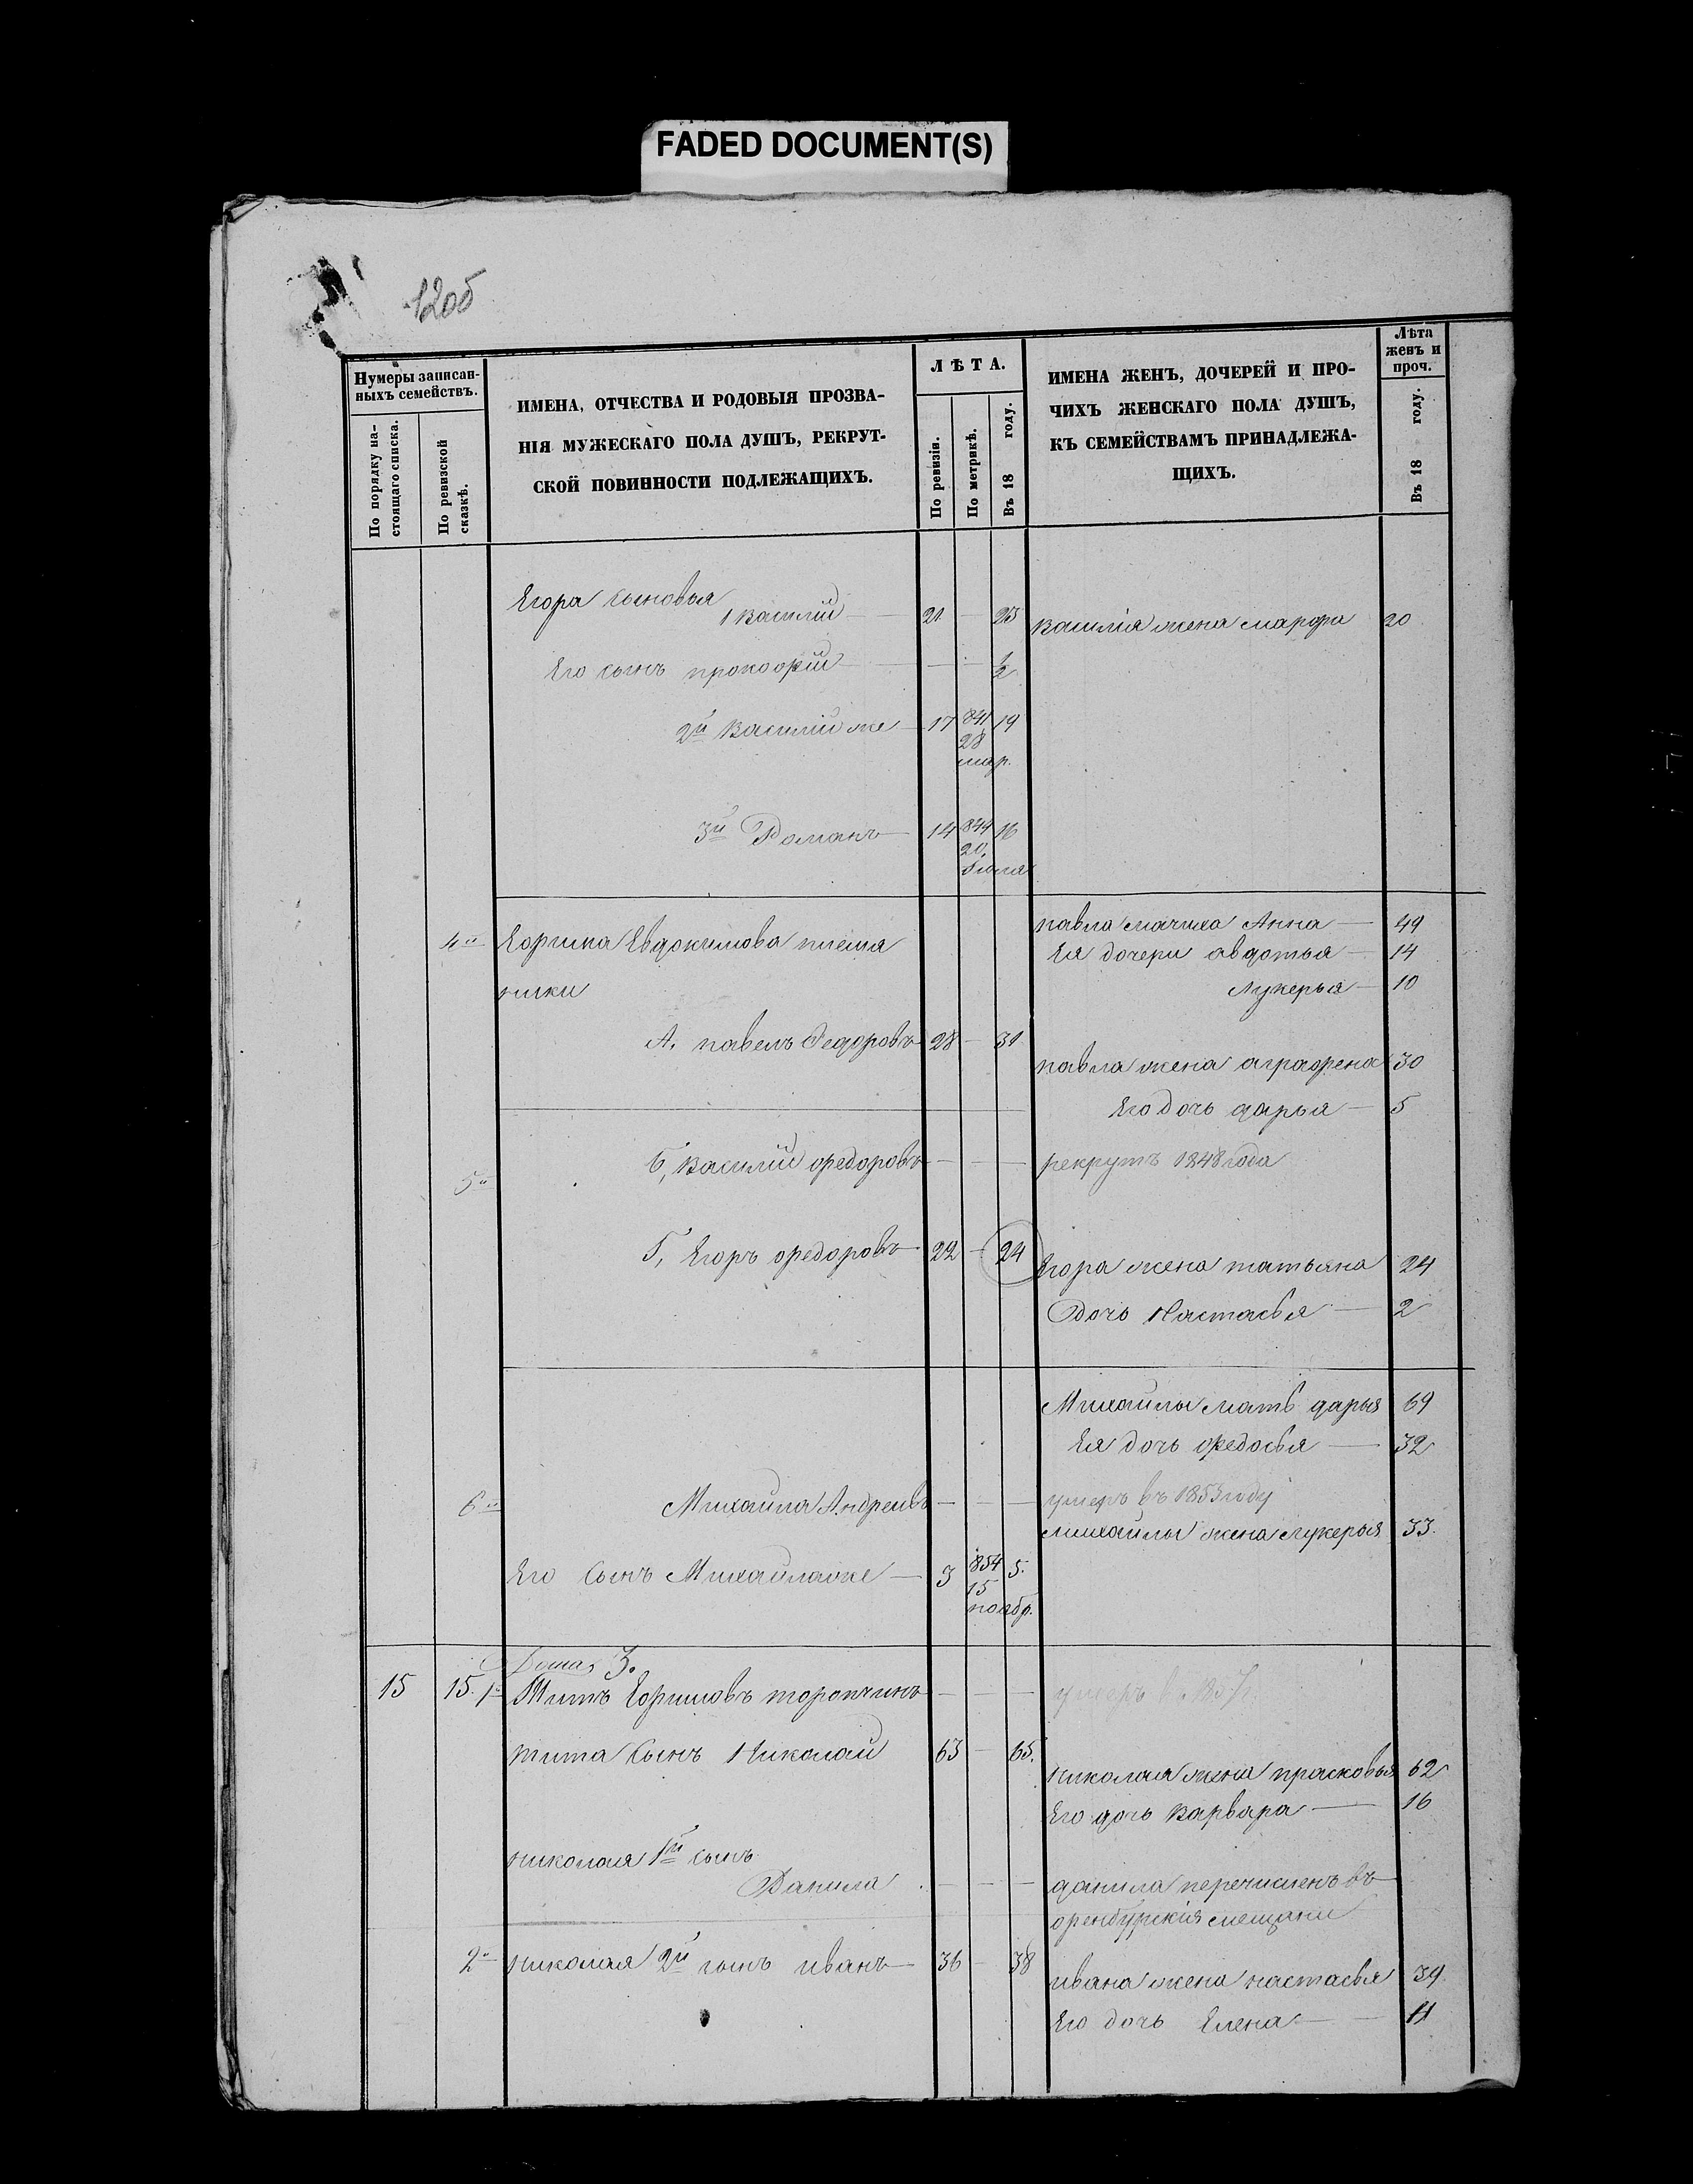 FADED DOCUMENT(S)
Нумеры записан-
ныхъ семействъ.
По порядку на-
стоящаго списка.
По ревизской
сказкѣ.
ИМЕНА, ОТЧЕСТВА И РОДОВЫЯ ПРОЗВА-
НІЯ МУЖЕСКАГО ПОЛА ДУШЪ, РЕКРУТ-
СКОЙ ПОВИННОСТИ ПОДЛЕЖАЩИХЪ.
ЛѢТА.
По ревизіи.
По метрикѣ.
Въ 18 году.
ИМЕНА ЖЕНЪ, ДОЧЕРЕЙ И ПРО-
ЧИХЪ ЖЕНСКАГО ПОЛА ДУШЪ,
КЪ СЕМЕЙСТВАМЪ ПРИНАДЛЕЖА-
ЩИХЪ.
Лѣта
женъ и
проч.
Въ 18 году.
Егора сыновья
1 василій — 21 — 23 василія жена марфа 20
Его сынъ прокофій — — — 1/2
2й василій же — 17 841 19
28
мар.
3й Романъ — 14 844 16
20
Іюля
павла мачиха Анна — 49
4й Ефима Евдокимова племя
Ея дочери авдотья — 14
ники
лукерья — 10
А, павелъ Федоровъ 28 — 31
павла жена аграфена 30
Его дочь дарья — 5
Б, василій федоровъ — — — рекрутъ 1848 года
5й
Г, Егоръ федоровъ 22 — 24 Егора жена татьяна 24
дочь Настасья — 2
Михайлы мать дарья 69
Ея дочь федосья — 32
6й Михайла Андреивъ — — — умеръ въ 1853 году
михайлы жена лукерья 33.
Его сынъ Михайлаже — 3 854 5.
15
ноябр.
3.
15 15. 1й Титъ Ефимовъ торопчинъ — — — умеръ
тита сынъ Николай 63 — 65.
николая жена прасковья 62
Его дочь варвара — 16
николая 1й сынъ
Данила — — — данила перечисленъ въ
оренбургскія мещани
2й николая 2й сынъ иванъ — 36 — 38
ивана жена настасья 39
Его дочь Елена — — 11